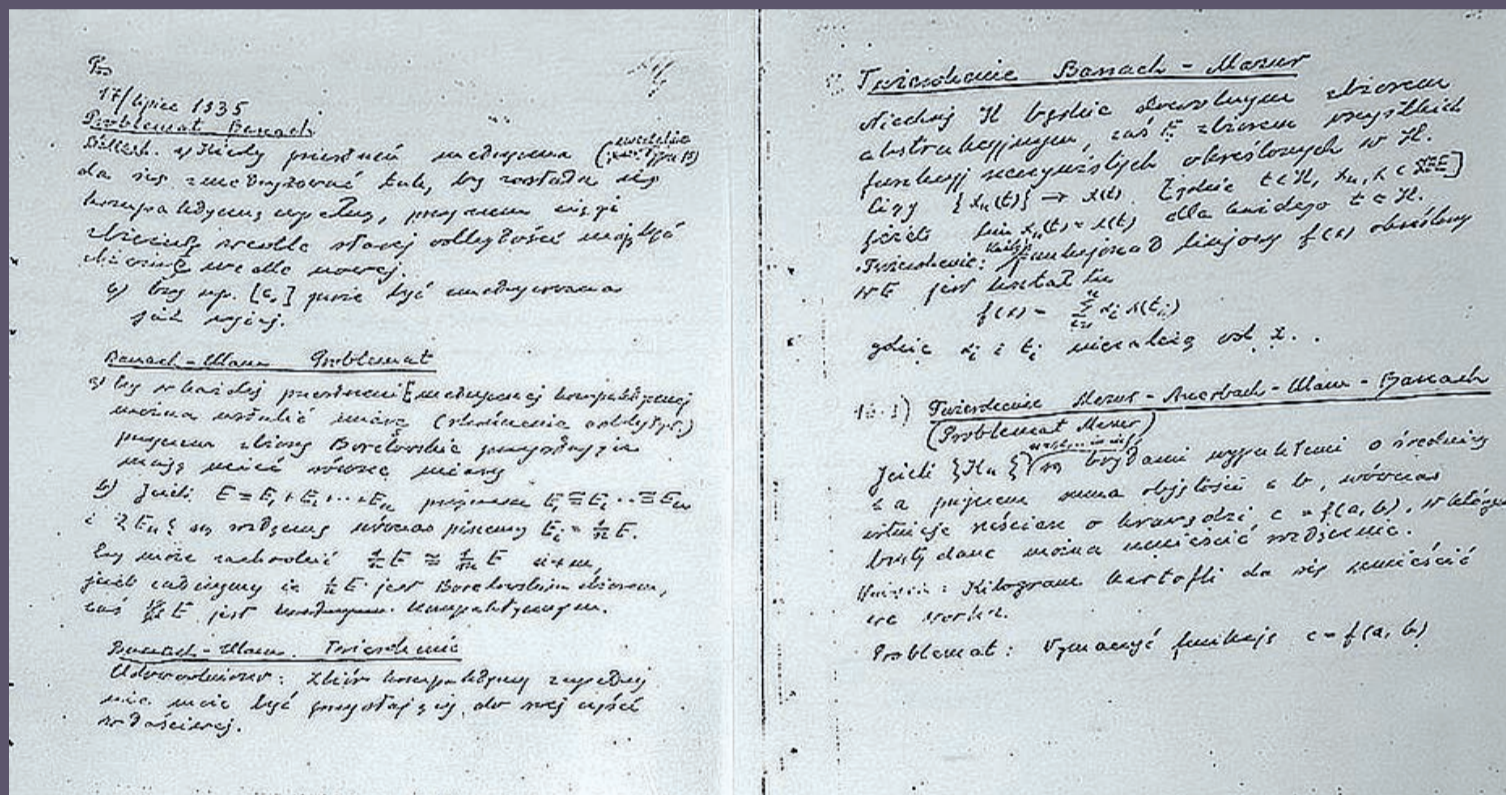 17/lipiec 1935
Problemat Banach
a) Kiedy przestrzeń metryczna
da się zmetryzować tak, by została się
kompaktyczną i zupełną, przyczem ciągi
zbieżne wedle starej odległości mają być
zbieżne wedle nowej.
b) Czy np. [c₀] może być zmetryzowana
jak wyżej.
Banach-Ulam Problemat
a) Czy w każdej przestrzeni E metrycznej kompaktycznej
można ustalić miarę
przyczem zbiory Borelowskie przystające
mają mieć równe miary
b) Jeżeli E = E₁ + E₂ ... + Eₙ przyczem E₁ ≅ E₂ ... ≅ Eₙ
i {Eₙ} są rozłączne wówczas piszemy Eᵢ = 1/n E.
Czy może zachodzić 1/n E ≅ 1/m E n≠m,
jeżeli założymy że 1/n E jest Borelowskim zbiorem,
zaś E jest kompaktycznym.
Banach-Ulam. Twierdzenie
Udowodniono: Zbiór kompaktyczny zupełny
nie może być przystający do swej części
właściwej.
Twierdzenie Banach - Mazur
Niechaj H będzie dowolnym zbiorem
abstrakcyjnym, zaś E zbiorem wszystkich
funkcyj rzeczywistych określonych w H.
Ciąg {xₙ(t)} → x(t)
jeżeli lim xₙ(t) = x(t) dla każdego t ∈ H.
Twierdzenie: Każdy funkcjonał linjowy f(x) określony
w E jest kształtu
f(x) = Σ αᵢ x(tᵢ)
gdzie αᵢ i tᵢ niezależą od x.
Twierdzenie Mazur - Auerbach - Ulam - Banach
(Problemat Mazur)
Jeżeli {Kₙ} są bryłami wypukłemi o średnicy
≤ a przyczem suma objętości ≤ b, wówczas
istnieje sześcian o krawędzi c = f(a, b), w którym
bryły dane można umieścić rozłącznie.
Kilogram kartofli da się umieścić
we worku.
Problemat: Wyznaczyć funkcję c = f(a, b)